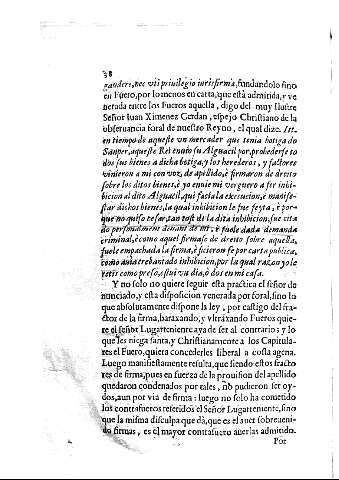 38
gaudere, nec vti priuilegio iurisfirmæ, fundandolo sino
en Fuero, por lo menos en carta, que está admitida, y ve
nerada entre los Fueros aquella, digo del muy Ilustre
Señor Iuan Ximenez Cerdan, espejo Christiano de la
obseruancia foral de nuestro Reyno, el qual dize. Itē.
en tiempo de aqueste vn mercader que tenia botiga do
Sauper, aqueste Rei enuio su Alguacil por, prohederse to
dos sus bienes a dicha botiga, y los herederos, y factores
vinieron a mi con voz, de apellido, è firmaron de dreito
sobre los ditos bienes, è yo enuie mi verguero a fer inhi
bicion al dito Alguacil, qui fasia la execucion, è manifes-
tar dichos bienes, la qual inhibicion le fue feyta, è por-
que no quiso cesar tan tost de la dita inhibicion, fue cita
do personalment denant de mi, è fuele dada demanda
criminal, è como aquel firmase de dreito sobre aquella,
fuele empachada la firma, è ficieron fe por carta publica,
como auia trebantado inhibicion, por la qual razon yo le
retis como preso, è stui vn dia, ò dos en mi casa.
Y no solo no quiere seguir esta practica el señor de
nunciado, y esta disposicion venerada por foral, sino lo
que absolutamente dispone la ley, por castigo del fra-
ctor de la firma, baraxando, y vltraxando Fueros quie-
re el señor Lugarteniente aya de ser al contrario: y lo
que les niega santa, y Christianamente a los Capitula-
res el Fuero, quiera concederles liberal a costa agena.
Luego manifiestamente resulta, que siendo estos fracto
res de firma, pues en fuerza de la prouision del apellido
quedaron condenados por tales, no pudieron ser oy-
dos, aun por via de firma: luego no solo ha cometido
los contrafueros referidos el Señor Lugarteniente, sino
que la misma disculpa que dà, que es el auer sobreueni-
do firmas, es el mayor contrafuero auerlas admitido.
Por